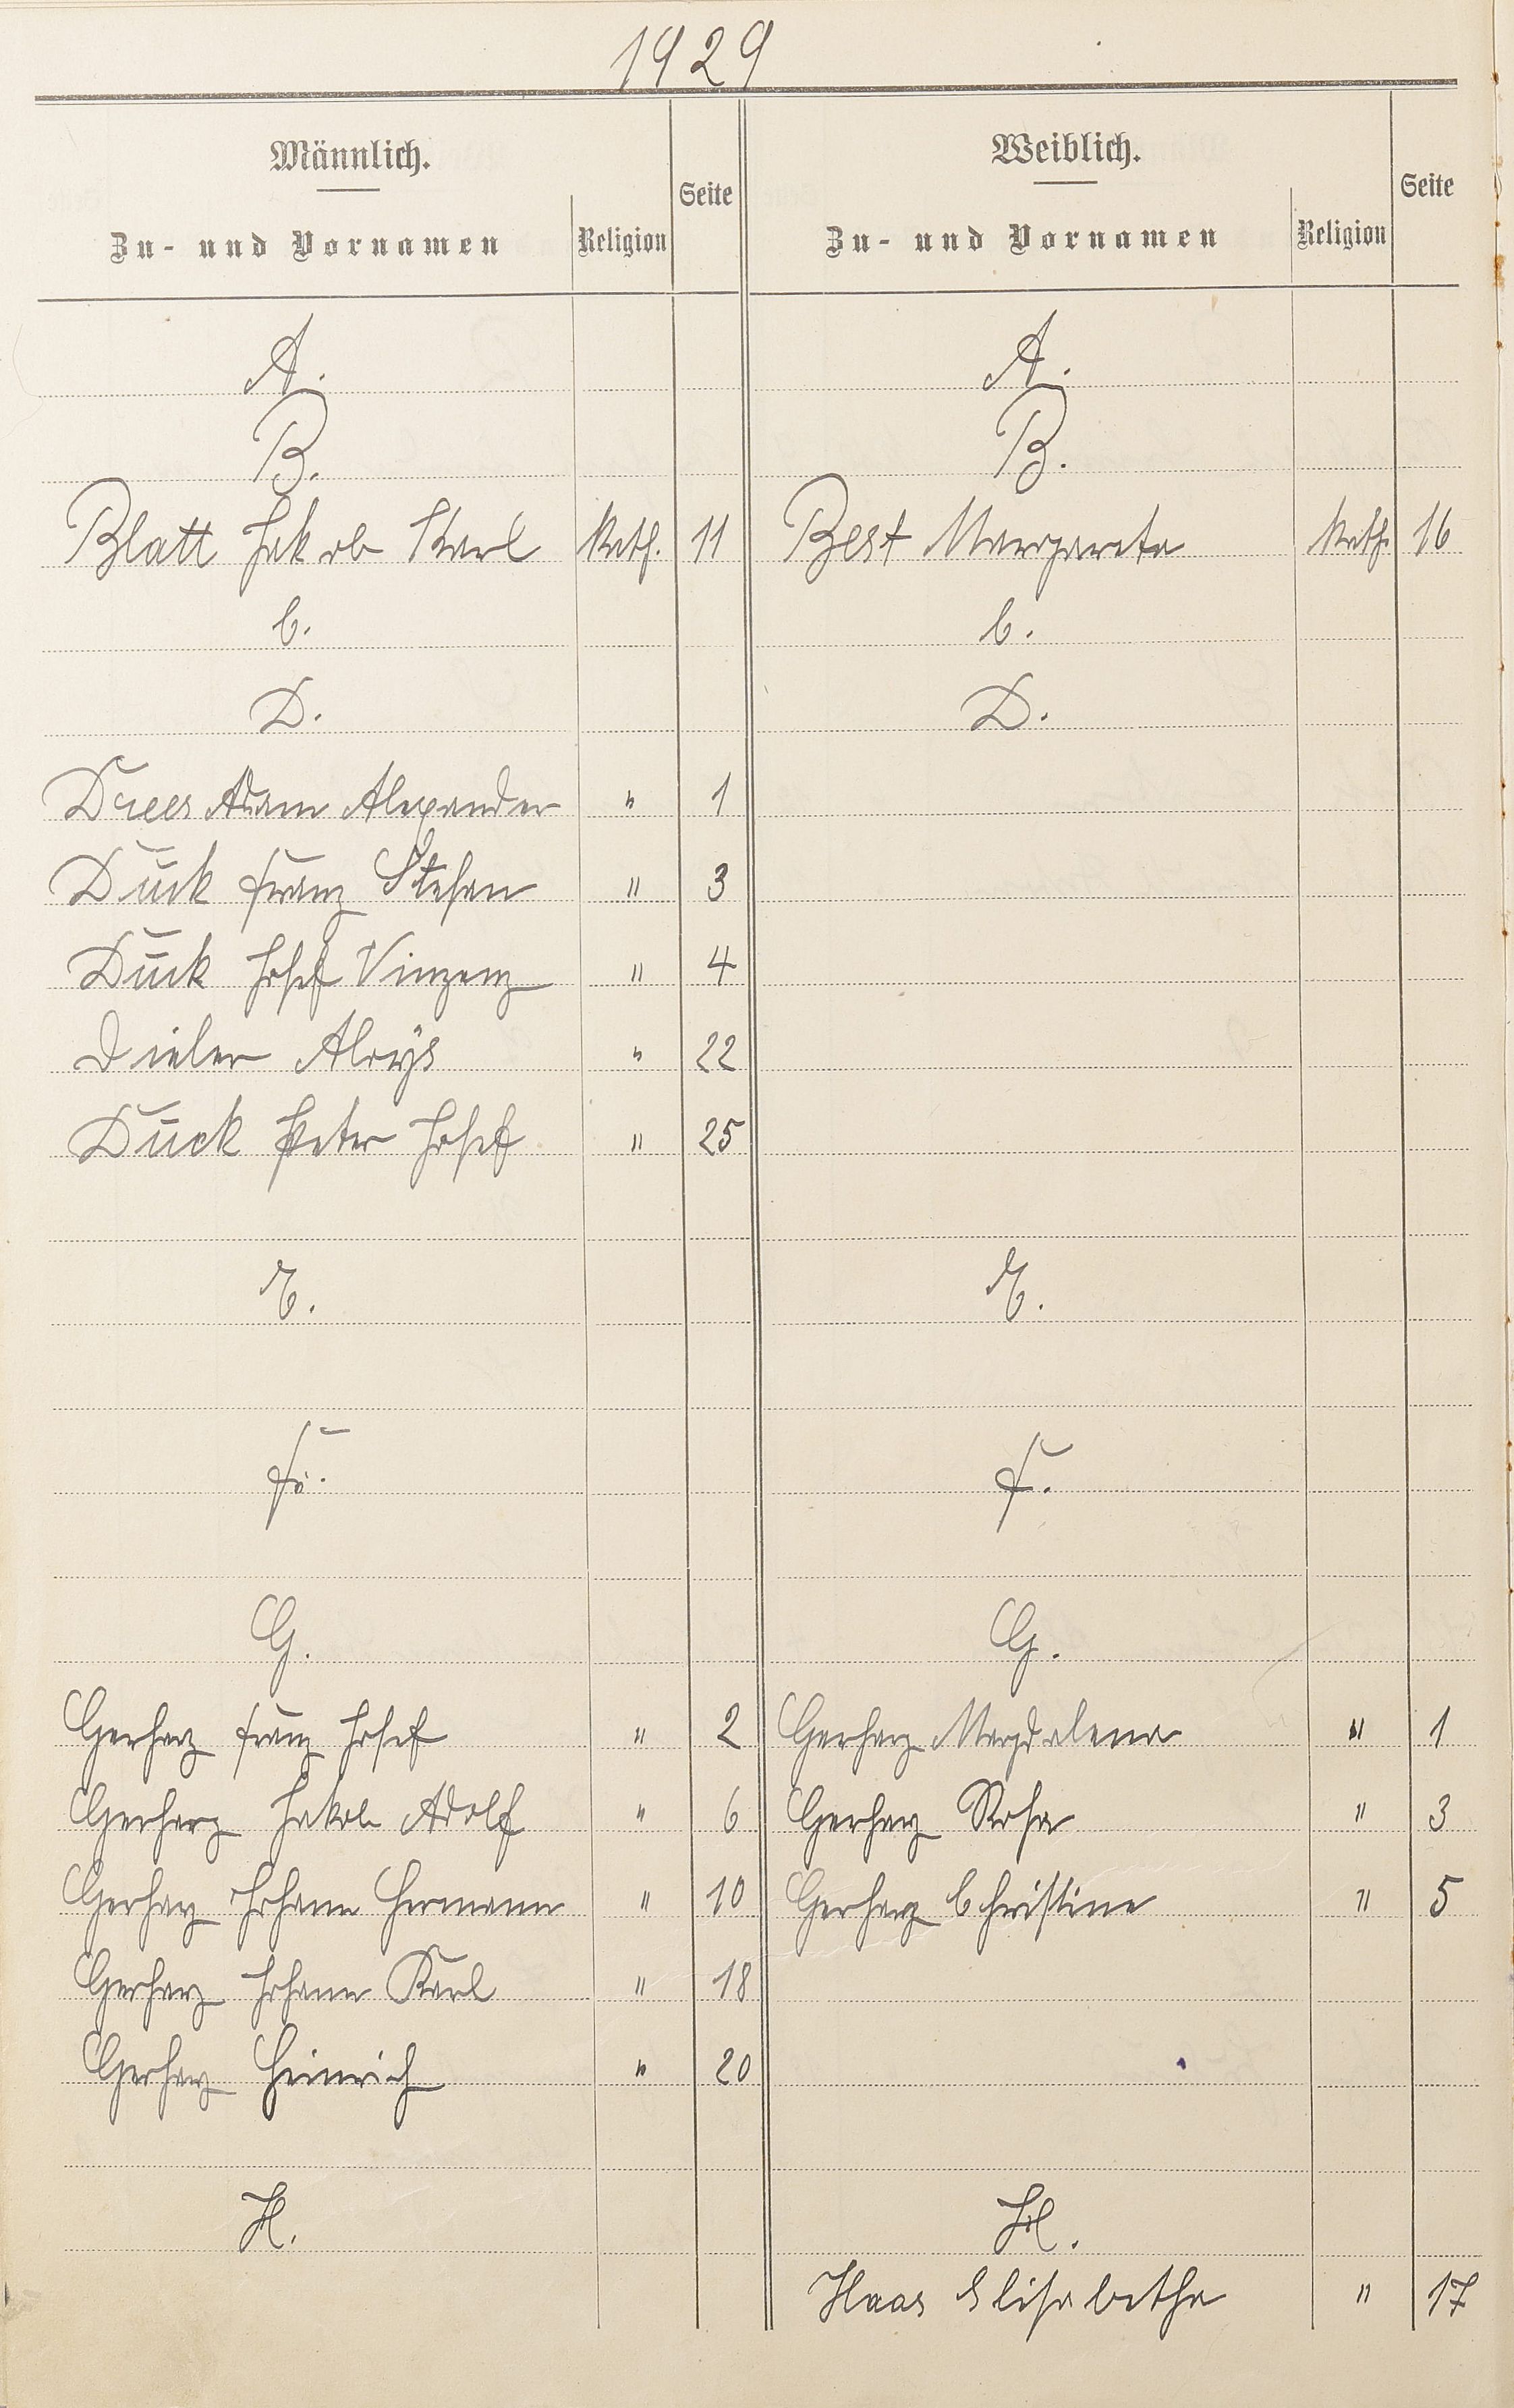 1929
Männlich. Weiblich.
Seite Seite
Zu- und Vornamen Religion Zu- und Vornamen Religion
A. A.
B. B.
Blatt Jakob Karl Kath. 11 Best Margareta Kath. 16
C. C.
D. D.
Drees Adam Alexander " 1
Dück Franz Stefan " 3
Dück Josef Vinzenz " 4
Dieler Aloÿs " 22
Dück Peter Josef " 25
E. E.
F. F.
G. G.
Gerharz Franz Josef " 2 Gerharz Magdalena " 1
Gerharz Jakob Adolf " 6 Gerharz Rosa " 3
Gerharz Johann Hermann " 10 Gerharz Christine " 5
Gerharz Johann Karl " 18
Gerharz Heinrich " 20
H. H.
Haas Elisabetha " 17